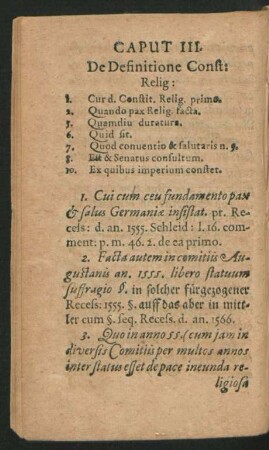 CAPUT III.
De Definitione Const:
Relig:
1. Cur d. Constit. Relig. primo.
2. Quando pax Relig. facta.
5. Quamdiu duratura.
6. Quid sit.
7. Quod conuentio & salutaris n. 9.
8. Est & Senatus consultum.
10. Ex quibus imperium constet.
1. Cui cum ceu fundamento pax
& salus Germaniæ insistat. pr. Re-
cess: d. an. 1555. Schleid: l. 16. com-
ment: p. m. 46. 2. de ea primo.
2. Facta autem in comitiis Au-
gustanis an. 1555. libero statuum
suffragio §. in solcher fürgezogener
Recess: 1555. §. auff das aber in mitt-
ler cum §. seq. Recess. d. an. 1566.
3. Quo in anno 55. (cum jam in
diversis Comitiis per multos annos
inter status esset de pace ineunda re-
ligiosa